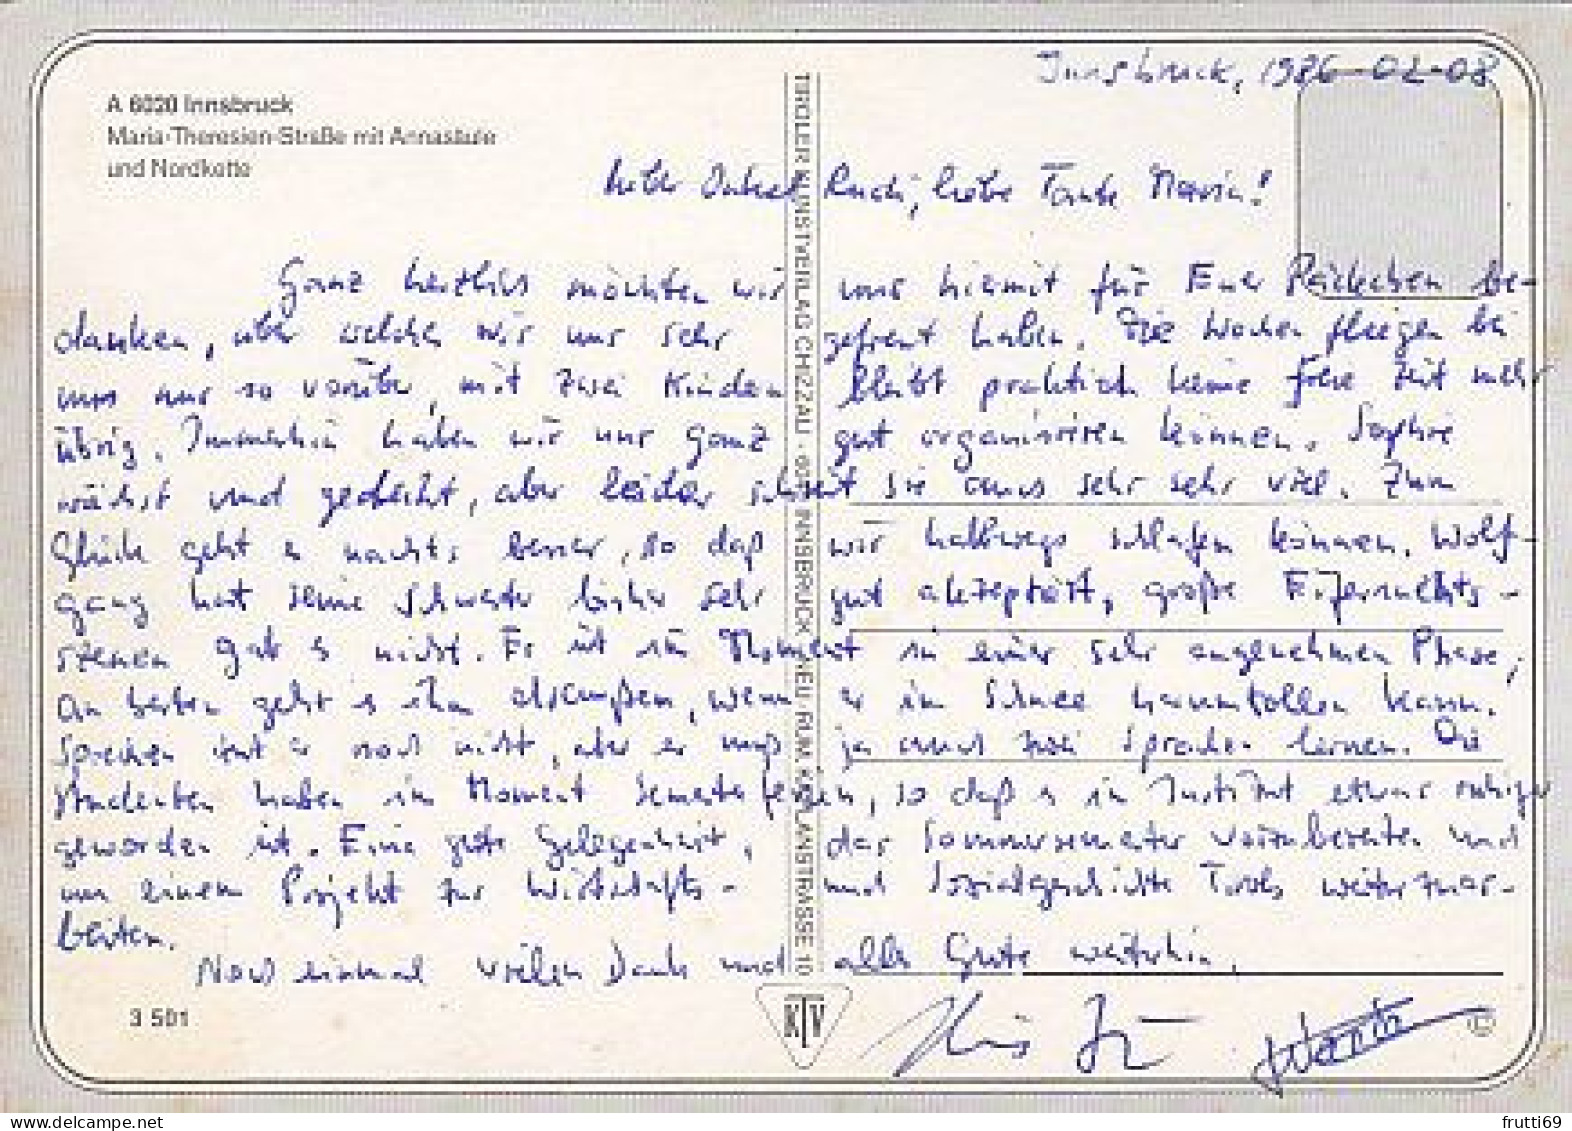 A 6020 Innsbruck
Maria-Theresien-Straße mit Annasäule
und Nordkette
Innsbruck, 1986-02-08
Lieber Onkel Rudi, liebe Tante Maria!
Ganz herzlichst möchten wir uns hiermit für Euer Päckchen be-
danken, über welches wir uns sehr gefreut haben. Die Wochen fliegen bei
uns nur so vorüber, mit zwei Kindern bleibt praktisch keine freie Zeit mehr
übrig. Immerhin haben wir uns ganz gut organisieren können. Sophie
wächst und gedeiht, aber leider schreit sie auch sehr sehr viel. Zum
Glück geht es nachts besser, so daß wir halbwegs schlafen können. Wolf-
gang hat seine Schwester bisher sehr gut akzeptiert, große Eifersuchts-
szenen gab es nicht. Er ist im Moment in einer sehr angenehmen Phase,
am besten geht's ihm draußen, wenn er im Schnee herumtollen kann.
Sprechen tut er noch nicht, aber er muß ja auch zwei Sprachen lernen. Die
Studenten haben im Moment Semesterferien, so daß es im Institut etwas ruhiger
geworden ist. Eine gute Gelegenheit, das Sommersemester vorzubereiten und
an einem Projekt zur Wirtschafts- und Sozialgeschichte Tirols weiterzuar-
beiten.
Noch einmal vielen Dank und alles Gute weiterhin.
TIROLER KUNSTVERLAG CHIZZALI · INNSBRUCK-NEU-RUM, KAPLANSTRASSE 10
3 501
KTV
©
frutti69